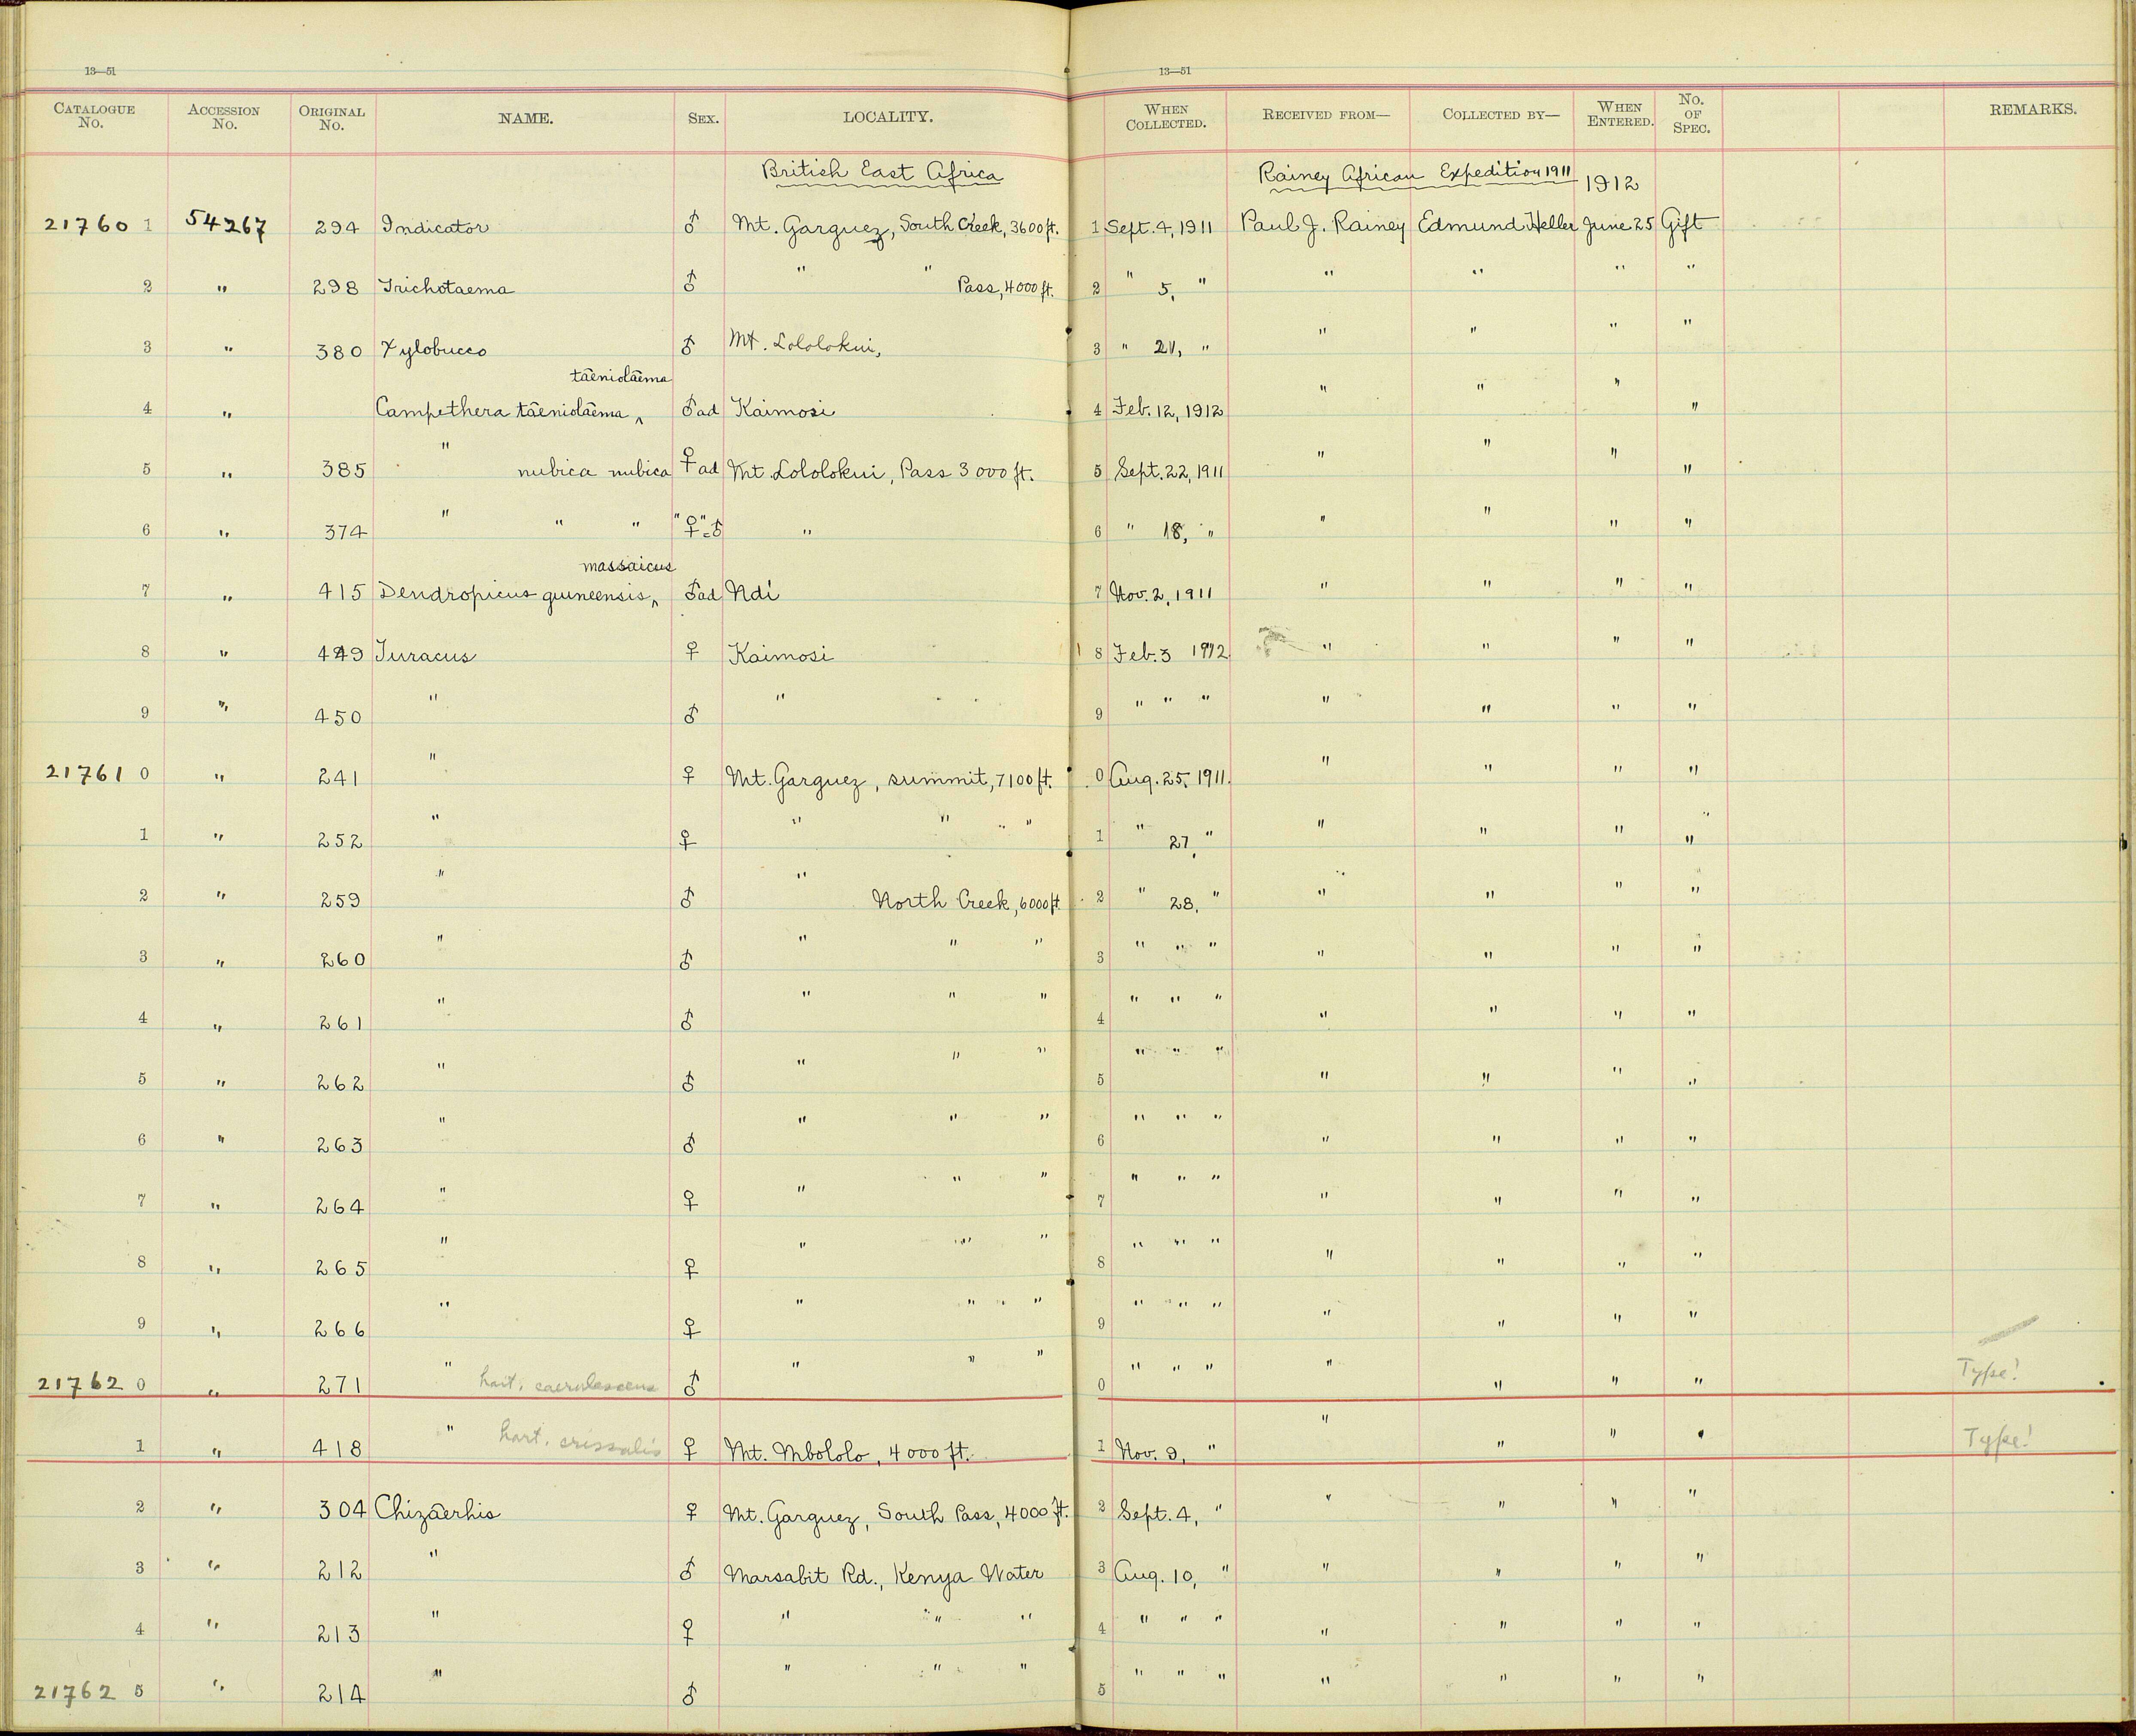 13—51 13—51
CATALOGUE No. ACCESSION No. ORIGINAL No. NAME. SEX. LOCALITY. WHEN COLLECTED. RECEIVED FROM— COLLECTED BY— WHEN ENTERED. No. OF SPEC. REMARKS.
British East Africa Rainey African Expedition 1911 1912
21760 1 54267 294 Indicator ♂ Mt. Garguez, South Creek, 3600 ft. 1 Sept. 4, 1911 Paul J. Rainey Edmund Heller June 25 Gift
2 " 298 Trichotaema ♂ " " Pass, 4000 ft. 2 " 5, " " " " "
3 " 380 Xylobucco ♂ Mt. Lololokui, 3 " 21, " " " " "
taeniolaema
4 " Campethera taeniolaema ‸ ♂ ad Kaimosi 4 Feb. 12, 1912 " " " "
5 " 385 " nubica nubica ♀ ad Mt. Lololokui, Pass 3000 ft. 5 Sept. 22, 1911 " " " "
6 " 374 " " " "♀"=♂ " 6 " 18, " " " " "
massaicus
7 " 415 Dendropicus guineensis ‸ ♂ ad Ndi 7 Nov. 2, 1911 " " " "
8 " 449 Turacus ♀ Kaimosi 8 Feb. 3 1912 " " " "
9 " 450 " ♂ " 9 " " " " " " "
21761 0 " 241 " ♀ Mt. Garguez, summit, 7100 ft. 0 Aug. 25, 1911. " " " "
1 " 252 " ♀ " " " " 1 " 27, " " " " "
2 " 259 " ♂ " North Creek, 6000 ft. 2 " 28, " " " " "
3 " 260 " ♂ " " " 3 " " " " " " "
4 " 261 " ♂ " " " 4 " " " " " " "
5 " 262 " ♂ " " " 5 " " " " " " "
6 " 263 " ♂ " " " 6 " " " " " " "
7 " 264 " ♀ " " " 7 " " " " " " "
8 " 265 " ♀ " " " 8 " " " " " " "
9 " 266 " ♀ " " " 9 " " " " " " "
21762 0 " 271 " hart. caerulescens ♂ " " " 0 " " " " " " " Type!
1 " 418 " hart. crissalis ♀ Mt. Mbololo, 4000 ft. 1 Nov. 9, " " " " " Type!
2 " 304 Chizaerhis ♀ Mt. Garguez, South Pass, 4000 ft. 2 Sept. 4, " " " " "
3 " 212 " ♂ Marsabit Rd., Kenya Water 3 Aug. 10, " " " " "
4 " 213 " ♀ " " " 4 " " " " " " "
21762 5 " 214 " ♂ " " " 5 " " " " " " "